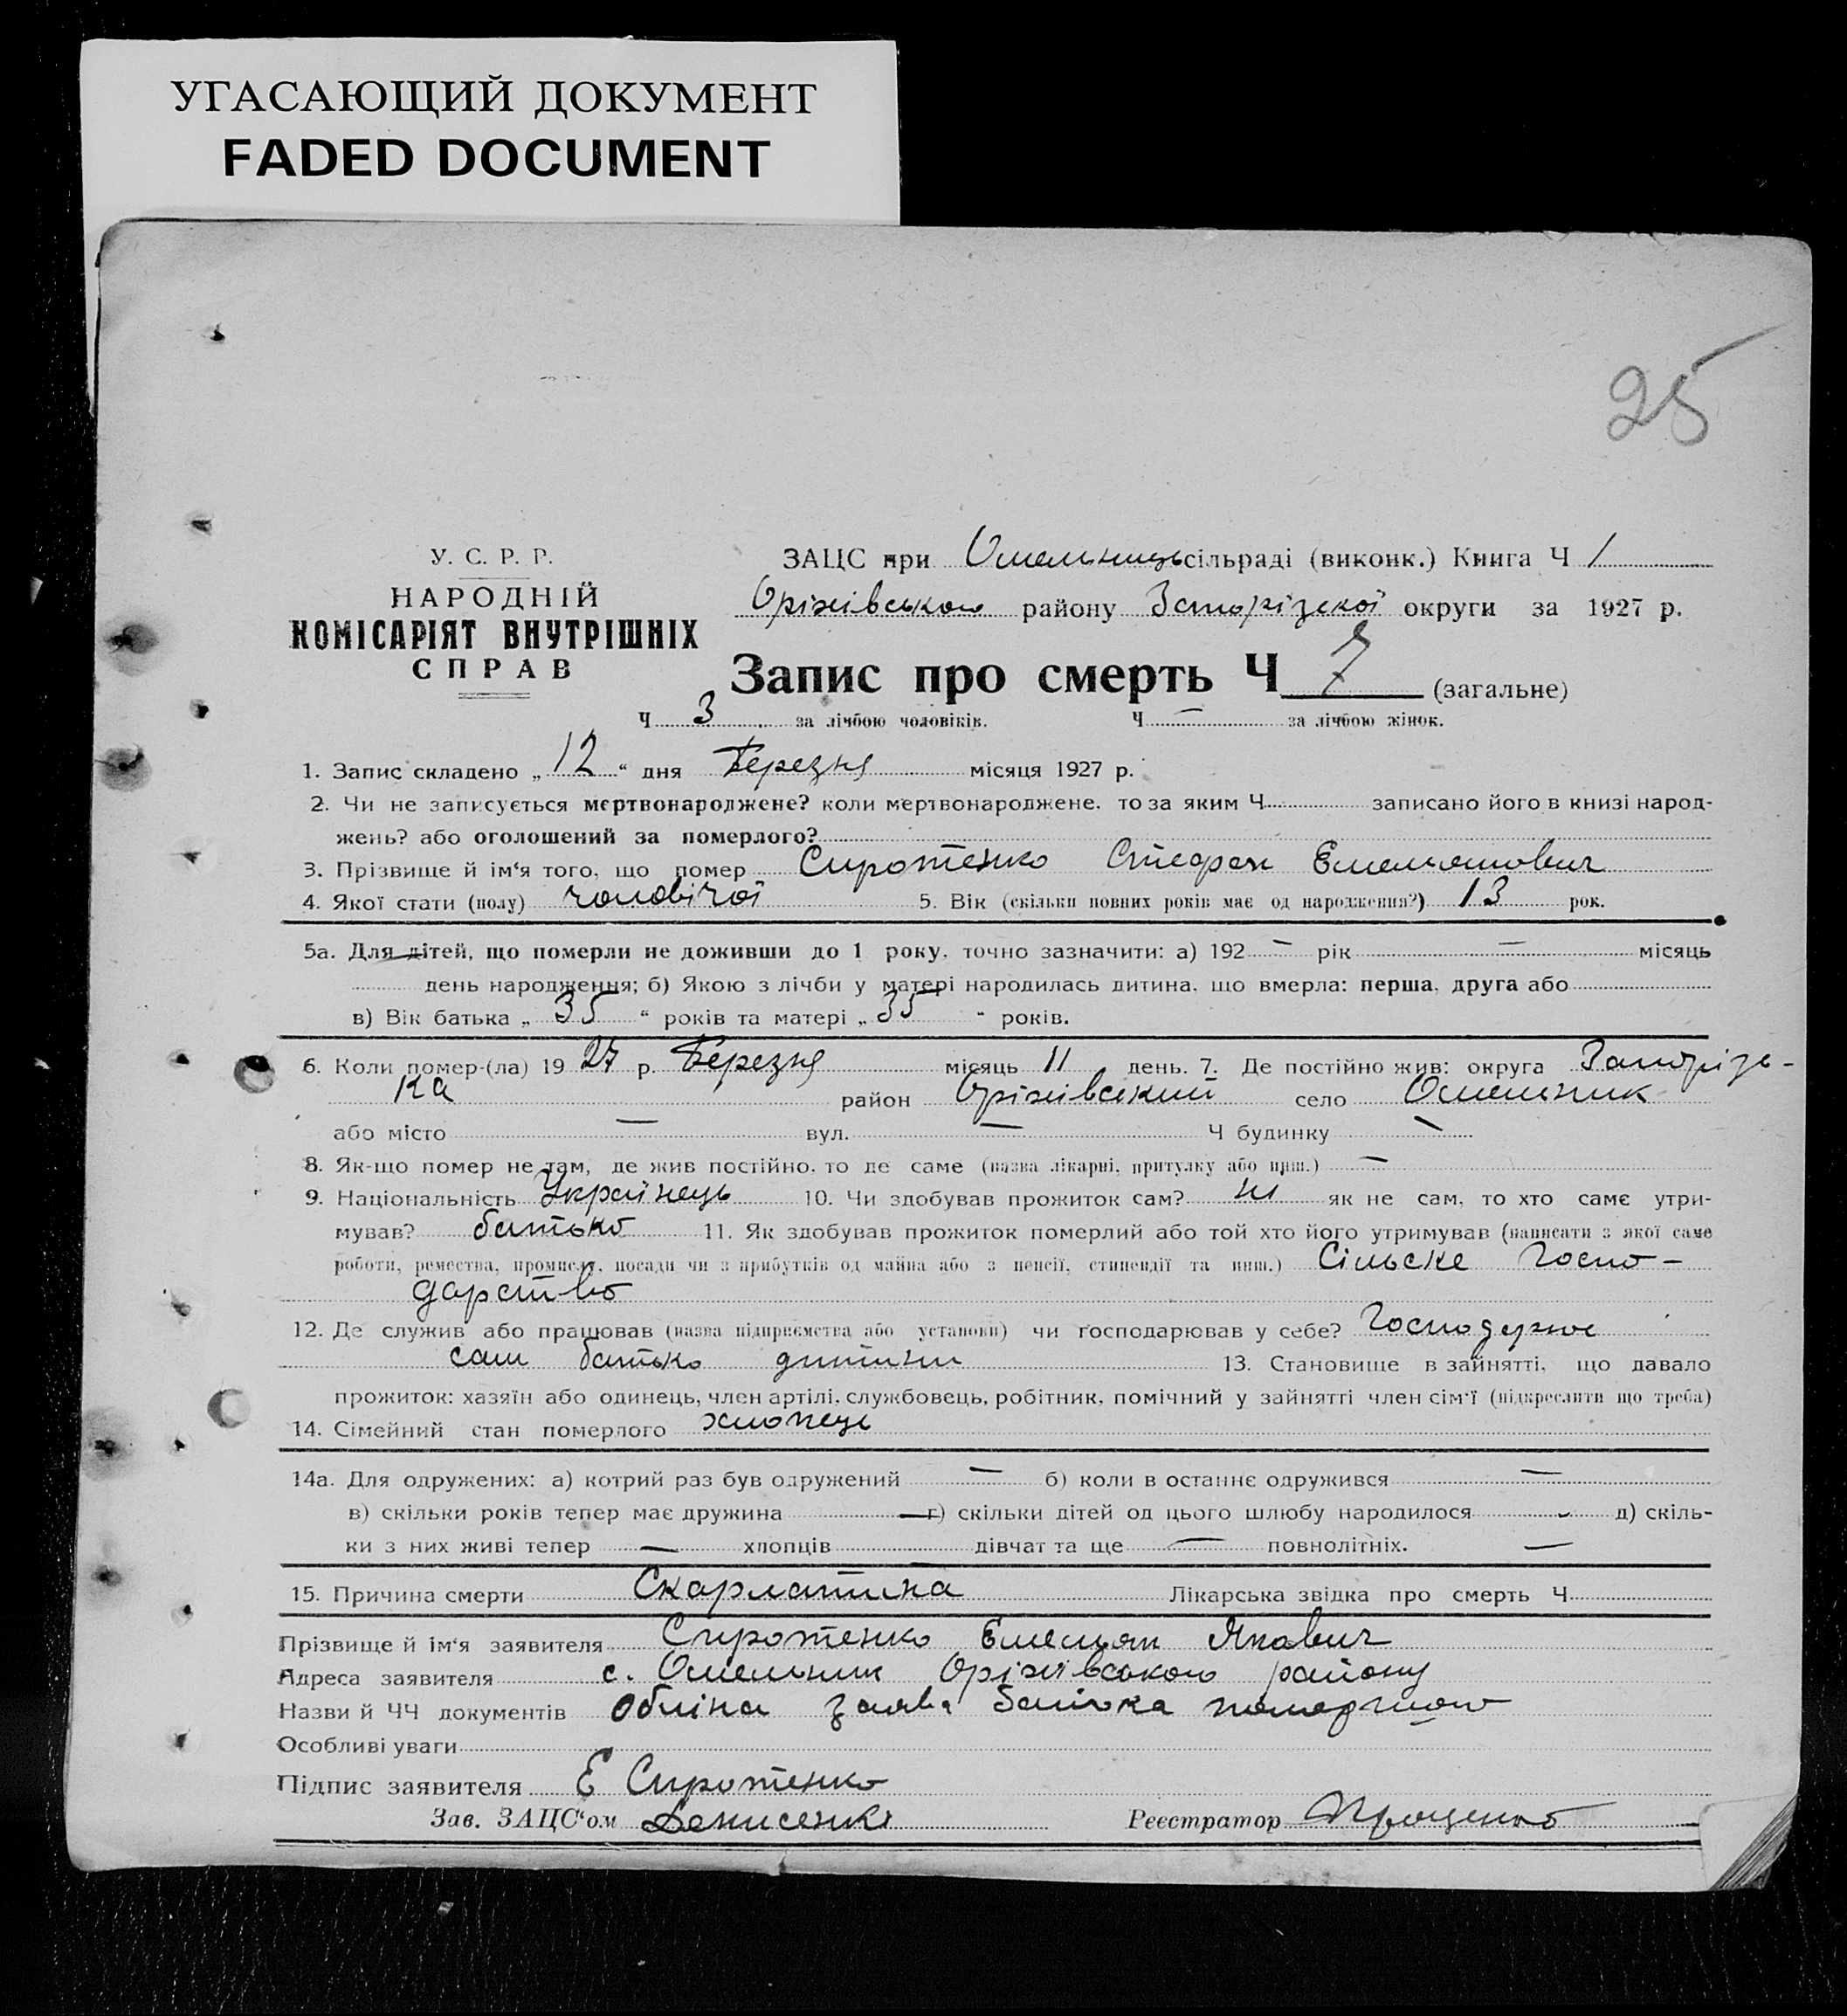 УГАСАЮЩИЙ ДОКУМЕНТ
FADED DOCUMENT
25
У. С. Р. Р.
НАРОДНІЙ
КОМІСАРІЯТ ВНУТРІШНІХ
СПРАВ
ЗАЦС при Омельницьсільраді (виконк.) Книга Ч 1
Оріхівського району Запорізкої округи за 1927 р.
Запис про смерть Ч 7 (загальне)
Ч 3 за лічбою чоловіків. Ч — за лічбою жінок.
1. Запис складено „ 12 “ дня Березня місяця 1927 р.
2. Чи не записується мертвонароджене? коли мертвонароджене, то за яким Ч записано його в книзі народ-
жень? або оголошений за померлого?
3. Прізвище й ім‘я того, що помер Сиротенко Стефан Емельянович
4. Якої стати (полу) чоловічої 5. Вік (скільки повних років має од народження?) 13 рок.
5а. Для дітей, що померли не доживши до 1 року, точно зазначити: а) 192 — рік — місяць
день народження; б) Якою з лічби у матері народилась дитина, що вмерла: перша, друга або
в) Вік батька „ 35 “ років та матері „ 35 “ років.
6. Коли помер-(ла) 19 27 р. Березня місяць 11 день. 7. Де постійно жив: округа Запорізь-
ка район Оріхівський село Омельник
або місто — вул. — Ч будинку —
8. Як-що помер не там, де жив постійно, то де саме (назва лікарні, притулку або инш.) —
9. Національність Українець 10. Чи здобував прожиток сам? ні як не сам, то хто саме утри-
мував? батько 11. Як здобував прожиток померлий або той хто його утримував (написати з якої саме
роботи, ремества, промислу, посади чи з прибутків од майна або з пенсії, стипендії та инш.) Сільске госпо-
дарство
12. Де служив або працював (назва підприємства або установи) чи господарював у себе? Господарює
сам батько дитини 13. Становище в зайнятті, що давало
прожиток: хазяїн або одинець, член артілі, службовець, робітник, помічний у зайнятті член сім‘ї (підкреслити що треба)
14. Сімейний стан померлого хлопець
14а. Для одружених: а) котрий раз був одружений — б) коли в останнє одружився —
в) скільки років тепер має дружина — г) скільки дітей од цього шлюбу народилося — д) скіль-
ки з них живі тепер — хлопців — дівчат та ще — повнолітніх. —
15. Причина смерти Скарлатина Лікарська звідка про смерть Ч
Прізвище й ім‘я заявителя Сиротенко Емельян Якович
Адреса заявителя с. Омельник Оріхівського району
Назви й ЧЧ документів заява батька
Особливі уваги
Підпис заявителя Е Сиротенко
Зав. ЗАЦС‘ом Денисенко Реєстратор Проценко